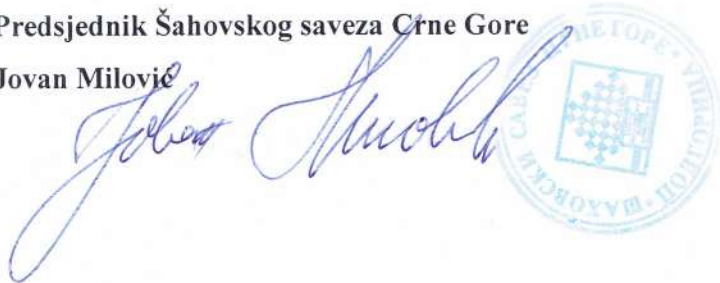 Predsjednik Šahovskog saveza Crne Gore
Jovan Milović
Јован Миловић
ШАХОВСКИ САВЕЗ ЦРНЕ ГОРЕ · ПОДГОРИЦА